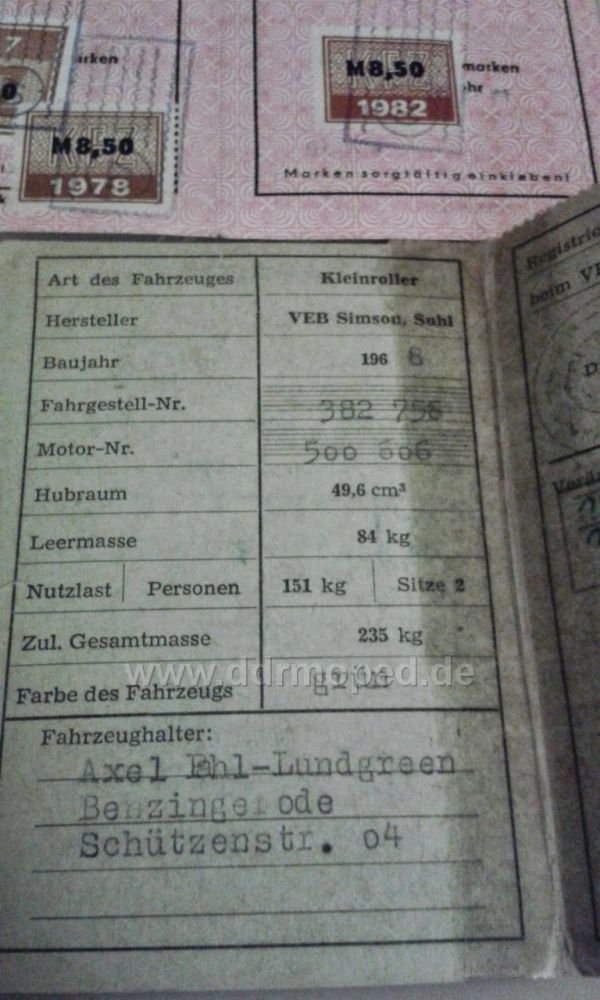 7
arken
0
M8,50
KFZ
1978
M8,50
KFZ
1982
marken
hr
Marken sorgfältig einkleben!
Art des Fahrzeuges Kleinroller
Hersteller VEB Simson, Suhl
Baujahr 196 8
Fahrgestell-Nr. 382 756
Motor-Nr. 500 606
Hubraum 49,6 cm³
Leermasse 84 kg
Nutzlast Personen 151 kg Sitze 2
Zul. Gesamtmasse 235 kg
www.ddrmoped.de
Farbe des Fahrzeugs grün
Fahrzeughalter:
Axel Lundgreen
Benzingerode
Schützenstr. o4
Registrie
beim VE
D
Verän